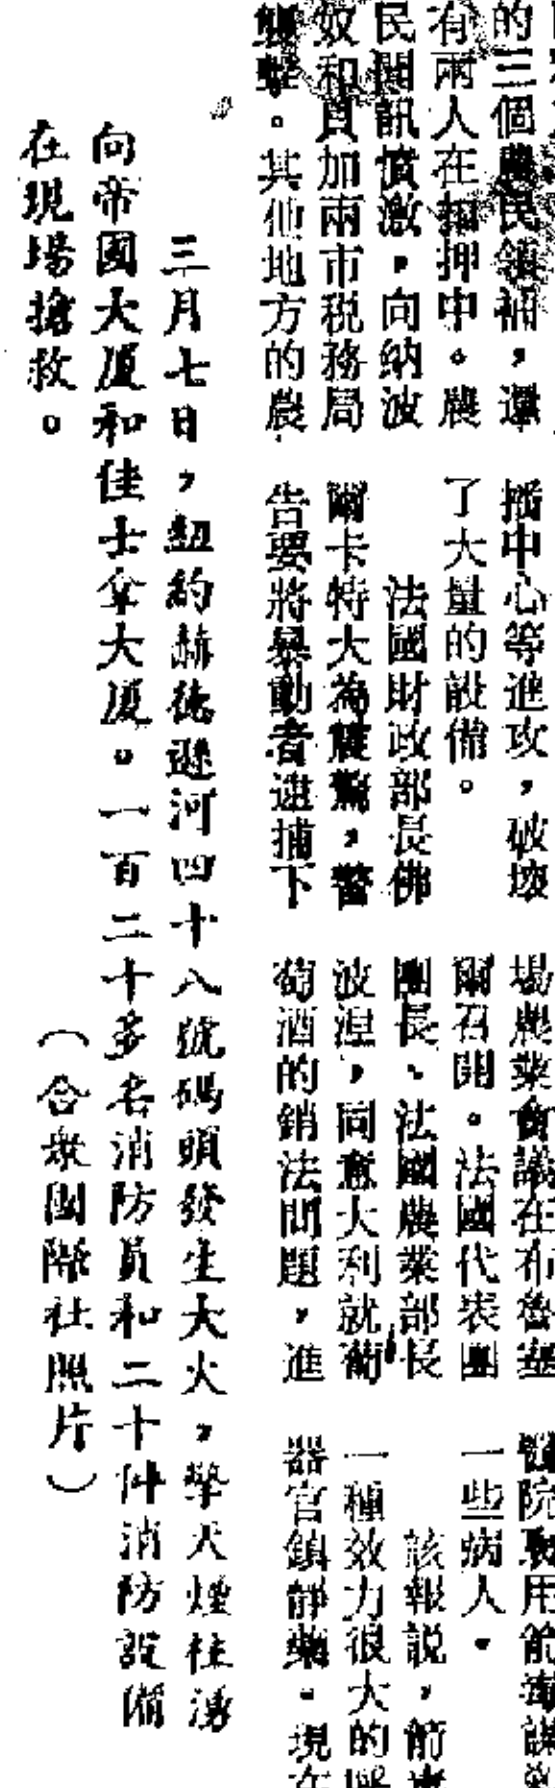 的三個農民領袖，還
有兩人在扣押中。農
民聞訊憤激，向納波
奴和貝加兩市税務局
襲擊。其他地方的農
播中心等進攻，破壞
了大量的設備。
法國財政部長佛
爾卡特大為震驚，警
告要將暴動者逮捕下
場農業會議在布魯塞
爾召開。法國代表團
團長、法國農業部長
波涅，同意大利就葡
萄酒的銷法問題，進
院
一些病人。
該報説，箭
一種效力很大的
器官鎮静藥。現
三月七日，紐約赫德遜河四十八號碼頭發生大火，擎天煙柱湧
向帝國大厦和佳士拿大厦。一百二十多名消防員和二十件消防設備
在現場搶救。
（合衆國際社照片）